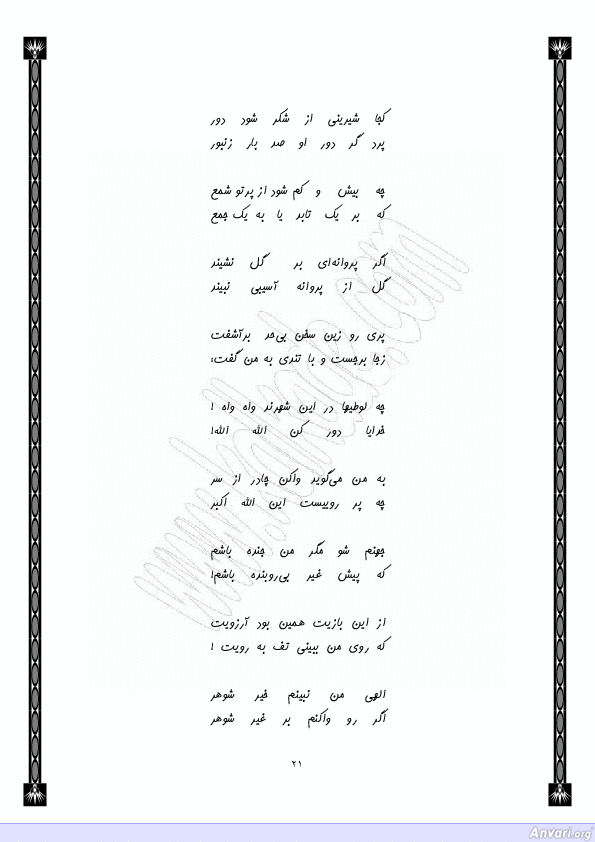 کجا شیرینی از شکر شود دور
پرد گر دور او صد بار زنبور
چه بیش و کم شود از پرتو شمع
که بر یک تابد یا به یک جمع
اگر پروانه‌ای بر گل نشیند
گل از پروانه آسیبی نبیند
پری رو زین سخن بی‌حد برآشفت
زجا برجست و با تندی به من گفت:
چه لوطیها در این شهرند واه واه !
خدایا دور کن الله الله!
به من می‌گوید واکن چادر از سر
چه پر روییست این الله اکبر
جهنم شو مگر من جنده باشم
که پیش غیر بی‌روبنده باشم!
از این بازیت همین بود آرزویت
که روی من ببینی تف به رویت !
الهی من نبینم خیر شوهر
اگر رو واکنم بر غیر شوهر
۲۱
Anvari.org